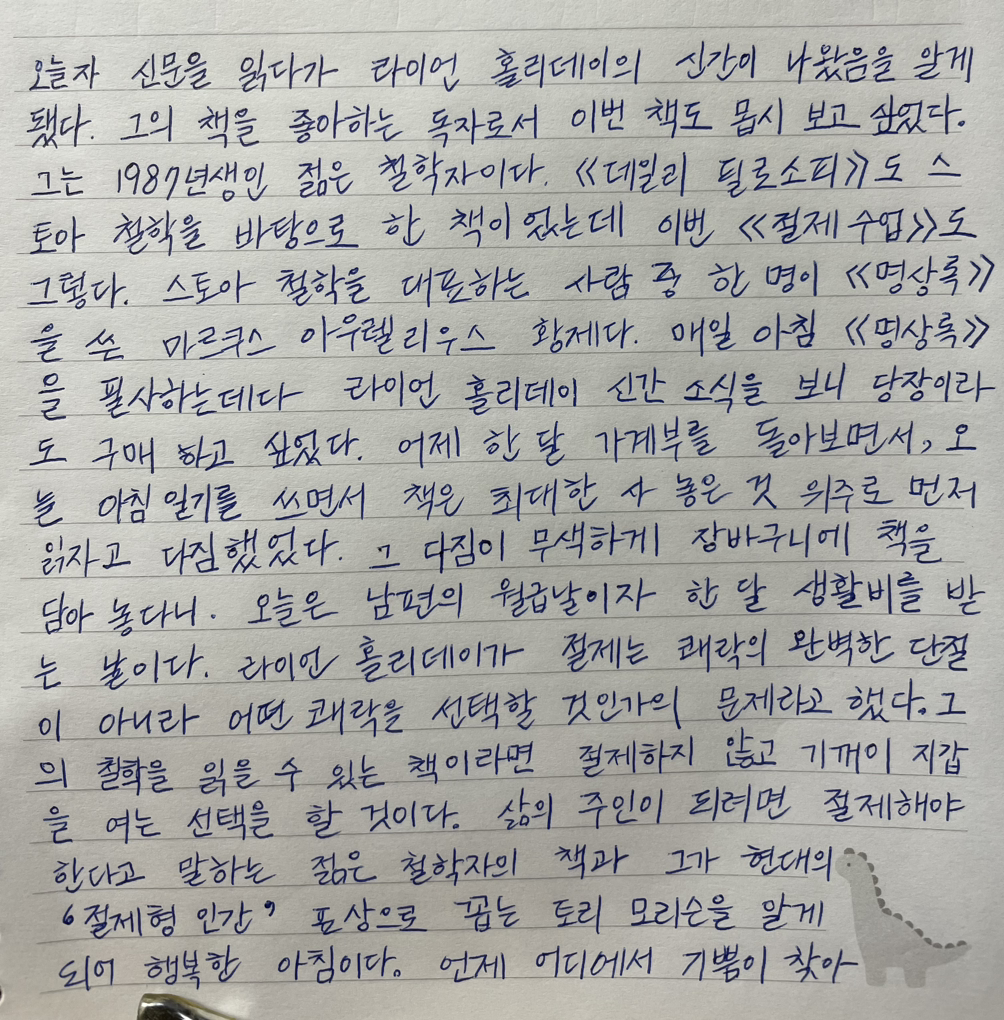 오늘자 신문을 읽다가 라이언 홀리데이의 신간이 나왔음을 알게
됐다. 그의 책을 좋아하는 독자로서 이번 책도 몹시 보고 싶었다.
그는 1987년생인 젊은 철학자이다. 《데일리 필로소피》도 스
토아 철학을 바탕으로 한 책이었는데 이번 《절제 수업》도
그렇다. 스토아 철학을 대표하는 사람 중 한 명이 《명상록》
을 쓴 마르쿠스 아우렐리우스 황제다. 매일 아침 《명상록》
을 필사하는데다 라이언 홀리데이 신간 소식을 보니 당장이라
도 구매 하고 싶었다. 어제 한 달 가계부를 돌아보면서, 오
늘 아침 일기를 쓰면서 책은 최대한 사 놓은 것 위주로 먼저
읽자고 다짐했었다. 그 다짐이 무색하게 장바구니에 책을
담아 놓다니. 오늘은 남편의 월급날이자 한 달 생활비를 받
는 날이다. 라이언 홀리데이가 절제는 쾌락의 완벽한 단절
이 아니라 어떤 쾌락을 선택할 것인가의 문제라고 했다. 그
의 철학을 읽을 수 있는 책이라면 절제하지 않고 기꺼이 지갑
을 여는 선택을 할 것이다. 삶의 주인이 되려면 절제해야
한다고 말하는 젊은 철학자의 책과 그가 현대의
'절제형 인간' 표상으로 꼽는 토리 모리슨을 알게
되어 행복한 아침이다. 언제 어디에서 기쁨이 찾아